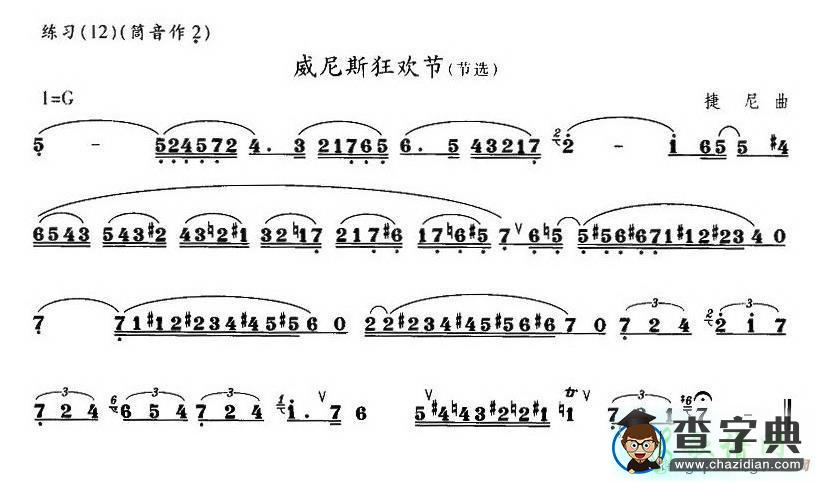 练习(12)(筒音作2)
威尼斯狂欢节(节选)
1=G
捷 尼 曲
5 - 524572 4. 3 21765 6. 5 43217 2 2 - i 65 5 #4
6543 543#2 43♮2#1 32♮17 217#6 17♮6#5 7 ∨ 6♮5 5#56#671#12#23 4 0
7 71#12#234#45#5 6 0 22#234#45#56#6 7 0 3 7 2 4 2 3 2 i 7
3 7 2 4 6 3 6 5 4 3 7 2 4 1 i. ∨ 7 6 ∨ 5#4♮43#2♮2#1 ♮1 tr ∨ 3 7 2 1 #6 7 -
查字典
www.chazidian.com